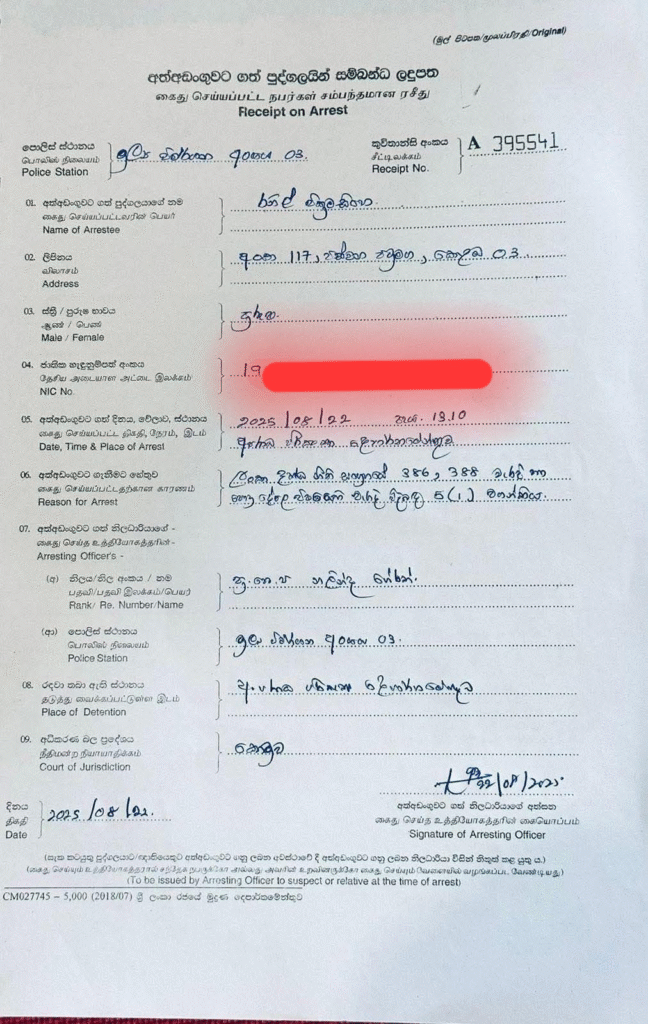 (මුල් පිටපත/மூலப்பிரதி/Original)
අත්අඩංගුවට ගත් පුද්ගලයින් සම්බන්ධ ලදුපත
கைது செய்யப்பட்ட நபர்கள் சம்பந்தமான ரசீது
Receipt on Arrest
පොලිස් ස්ථානය
பொலிஸ் நிலையம்
Police Station
මූල්‍ය විමර්ශන අංශය 03.
කුවිතාන්සි අංකය
சீட்டிலக்கம்
Receipt No.
A 395541
01. අත්අඩංගුවට ගත් පුද්ගලයාගේ නම
கைது செய்யப்பட்டவரின் பெயர்
Name of Arrestee
රනිල් වික්‍රමසිංහ
02. ලිපිනය
விலாசம்
Address
අංක 117, පටුමග, කොළඹ 03.
03. ස්ත්‍රී / පුරුෂ භාවය
ஆண் / பெண்
Male / Female
පුරුෂ.
04. ජාතික හැඳුනුම්පත් අංකය
தேசிய அடையாள அட்டை இலக்கம்
NIC No.
19
05. අත්අඩංගුවට ගත් දිනය, වේලාව, ස්ථානය
கைது செய்யப்பட்ட திகதி, நேரம், இடம்
Date, Time & Place of Arrest
2025/08/22 පැය. 13.10
අපරාධ පරීක්ෂණ දෙපාර්තමේන්තුව
06. අත්අඩංගුවට ගැනීමට හේතුව
கைது செய்யப்பட்டதற்கான காரணம்
Reason for Arrest
දණ්ඩ නීති සංග්‍රහයේ 386, 388 වැරදි හා
දේපල 5(1) වගන්තිය.
07. අත්අඩංගුවට ගත් නිලධාරියාගේ -
கைது செய்த உத்தியோகத்தரின்-
Arresting Officer's -
(අ) නිලය/නිල අංකය / නම
பதவி/பதவி இலக்கம்/பெயர்
Rank/ Re. Number/Name
(ආ) පොලිස් ස්ථානය
பொலிஸ் நிலையம்
Police Station
මූල්‍ය විමර්ශන අංශය 03.
08. රඳවා තබා ඇති ස්ථානය
தடுத்து வைக்கப்பட்டுள்ள இடம்
Place of Detention
අපරාධ පරීක්ෂණ දෙපාර්තමේන්තුව
09. අධිකරණ බල ප්‍රදේශය
நீதிமன்ற நியாயாதிக்கம்
Court of Jurisdiction
කොටුව
22/08/2025
දිනය
திகதி
Date
2025/08/22.
අත්අඩංගුවට ගත් නිලධාරියාගේ අත්සන
கைது செய்த உத்தியோகத்தரின் கையொப்பம்
Signature of Arresting Officer
(සැක කටයුතු පුද්ගලයාට/ඥාතියෙකුට අත්අඩංගුවට ගනු ලබන අවස්ථාවේ දී අත්අඩංගුවට ගනු ලබන නිලධාරියා විසින් නිකුත් කළ යුතු ය.)
(கைது செய்யும் உத்தியோகத்தரால் சந்தேக நபருக்கோ அல்லது அவரின் உறவினருக்கோ கைது செய்யும் வேளையில் வழங்கப்பட வேண்டியது)
(To be issued by Arresting Officer to suspect or relative at the time of arrest)
CM027745 – 5,000 (2018/07) ශ්‍රී ලංකා රජයේ මුද්‍රණ දෙපාර්තමේන්තුව